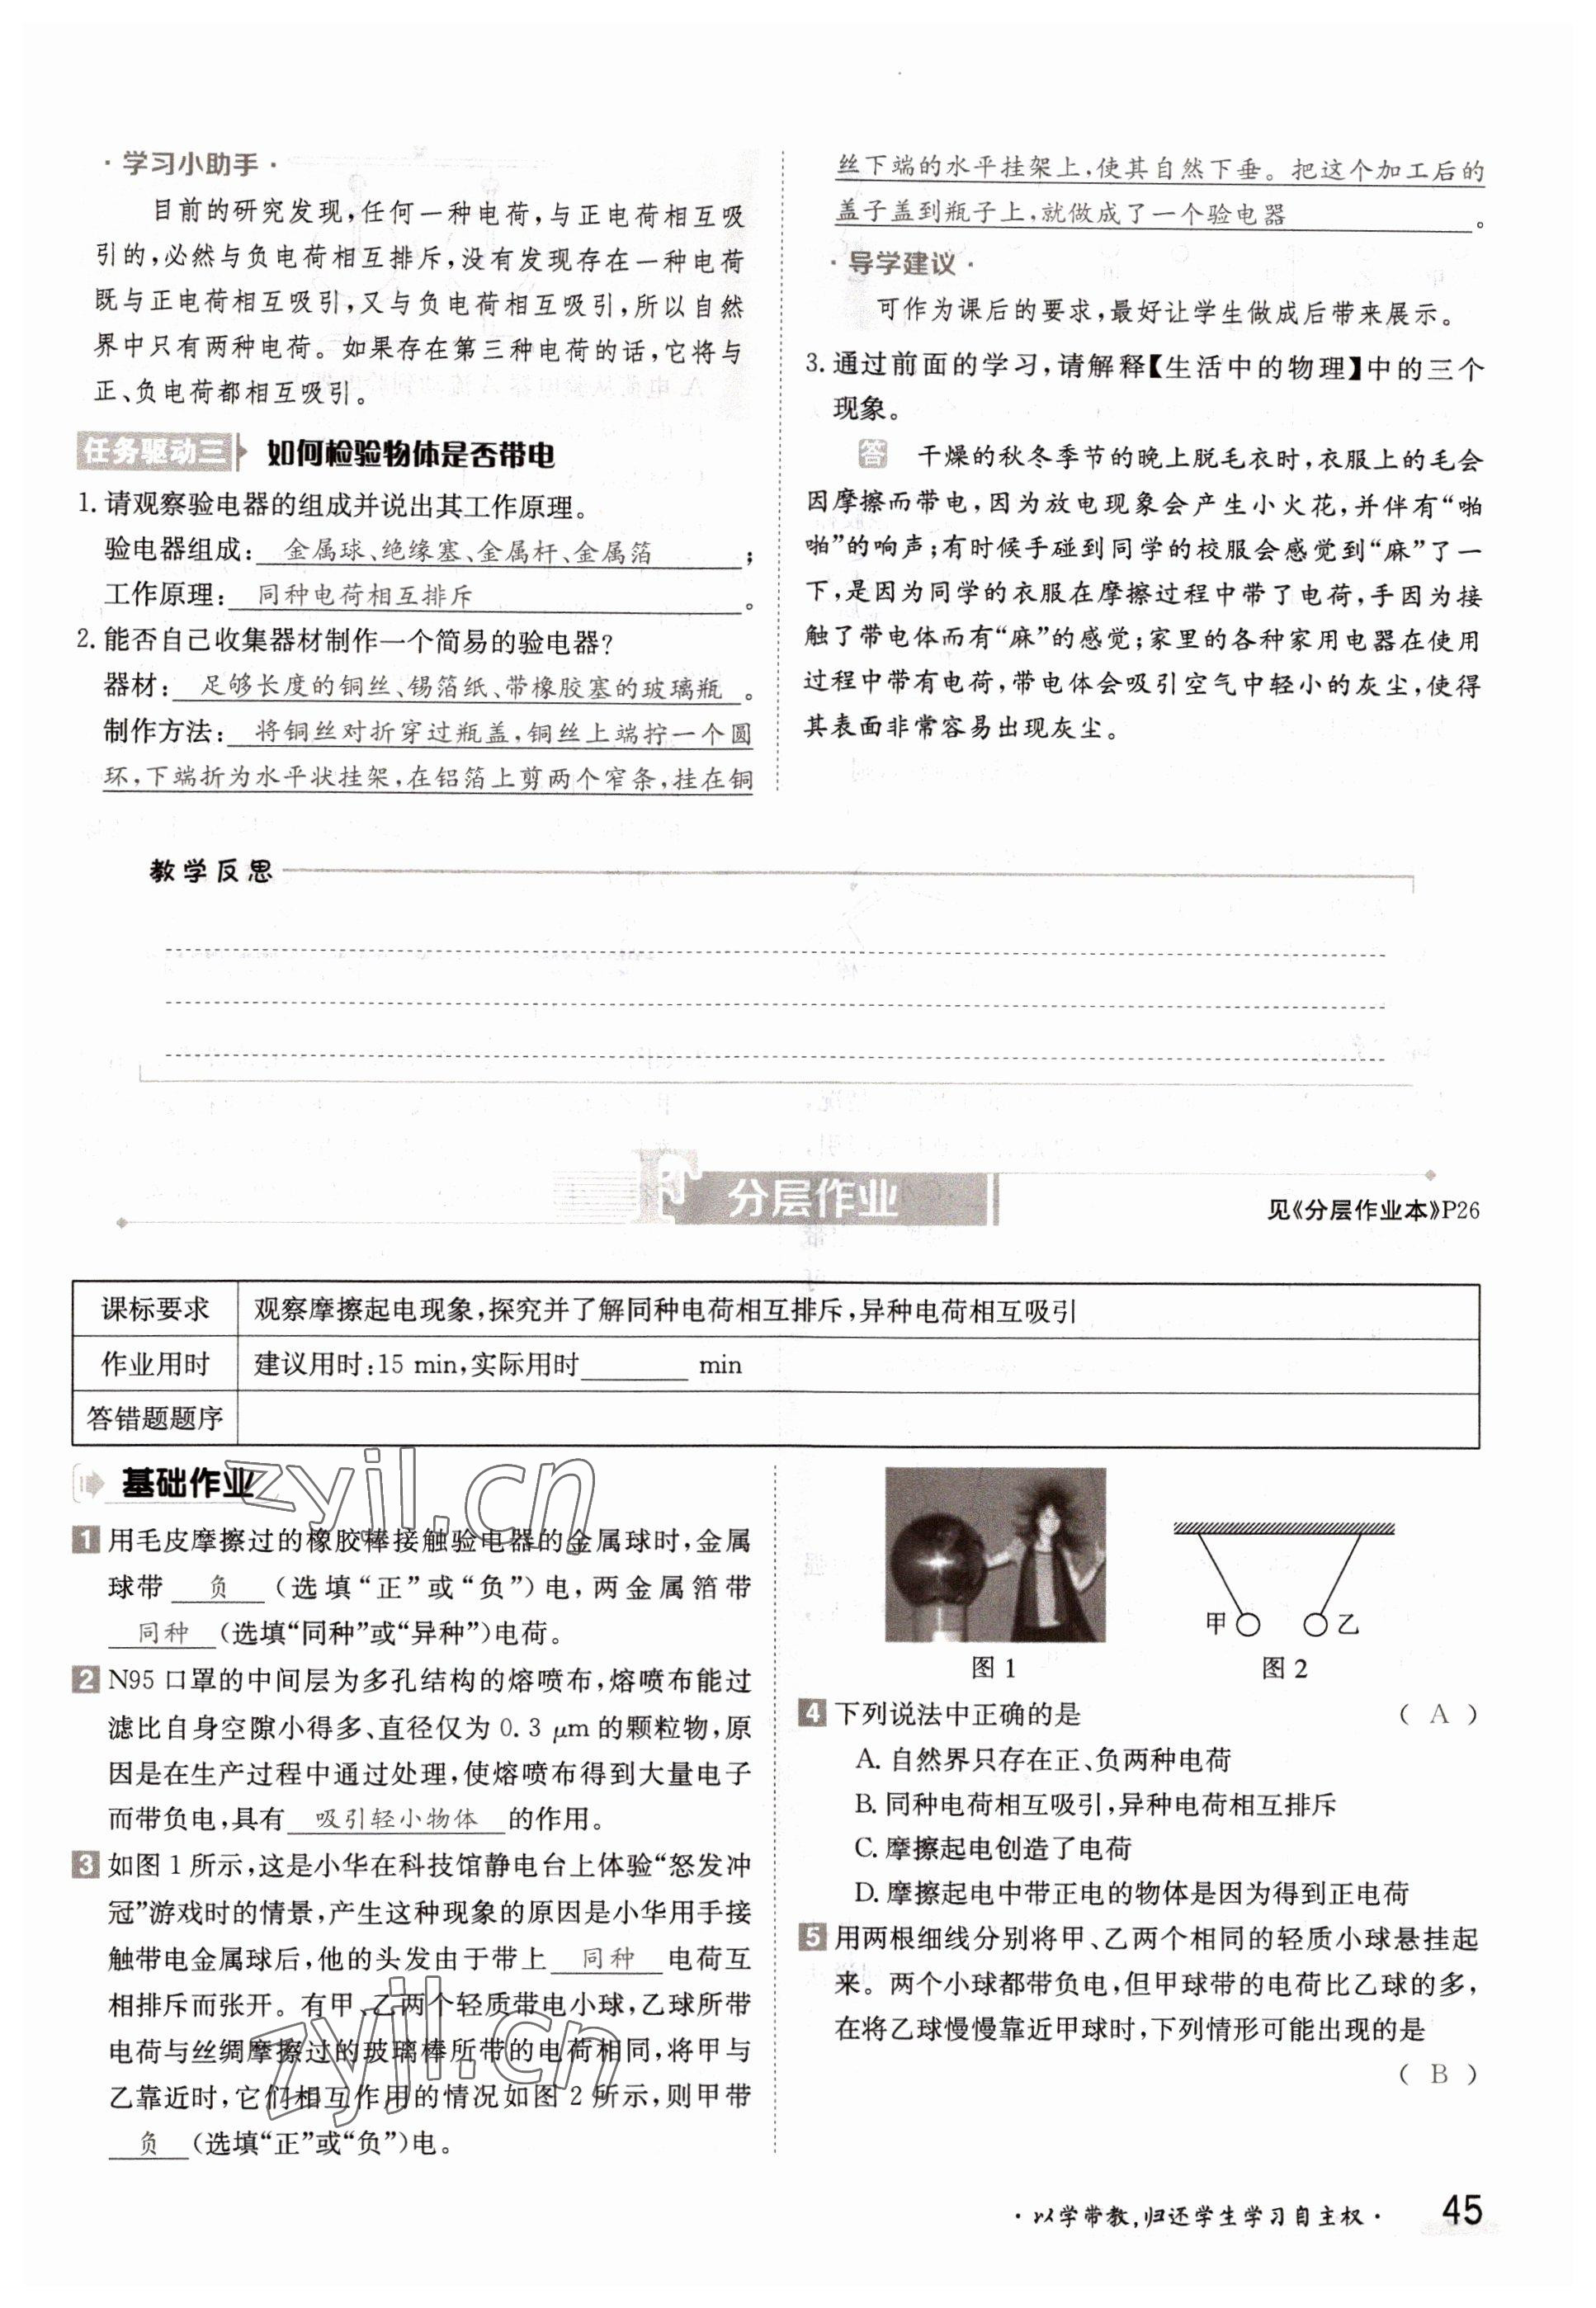 ·学习小助手·
目前的研究发现,任何一种电荷,与正电荷相互吸
引的,必然与负电荷相互排斥,没有发现存在一种电荷
既与正电荷相互吸引,又与负电荷相互吸引,所以自然
界中只有两种电荷。如果存在第三种电荷的话,它将与
正、负电荷都相互吸引。
任务驱动三 如何检验物体是否带电
1. 请观察验电器的组成并说出其工作原理。
验电器组成: 金属球、绝缘塞、金属杆、金属箔 ;
工作原理: 同种电荷相互排斥 。
2. 能否自己收集器材制作一个简易的验电器?
器材: 足够长度的铜丝、锡箔纸、带橡胶塞的玻璃瓶 。
制作方法: 将铜丝对折穿过瓶盖,铜丝上端拧一个圆
环,下端折为水平状挂架,在铝箔上剪两个窄条,挂在铜
丝下端的水平挂架上,使其自然下垂。把这个加工后的
盖子盖到瓶子上,就做成了一个验电器 。
·导学建议·
可作为课后的要求,最好让学生做成后带来展示。
3. 通过前面的学习,请解释【生活中的物理】中的三个
现象。
答 干燥的秋冬季节的晚上脱毛衣时,衣服上的毛会
因摩擦而带电,因为放电现象会产生小火花,并伴有“啪
啪”的响声;有时候手碰到同学的校服会感觉到“麻”了一
下,是因为同学的衣服在摩擦过程中带了电荷,手因为接
触了带电体而有“麻”的感觉;家里的各种家用电器在使用
过程中带有电荷,带电体会吸引空气中轻小的灰尘,使得
其表面非常容易出现灰尘。
教学反思
F 分层作业
见《分层作业本》P26
课标要求 观察摩擦起电现象,探究并了解同种电荷相互排斥,异种电荷相互吸引
作业用时 建议用时:15 min,实际用时 min
答错题题序
基础作业
1 用毛皮摩擦过的橡胶棒接触验电器的金属球时,金属
球带 负 (选填“正”或“负”)电,两金属箔带
同种 (选填“同种”或“异种”)电荷。
2 N95 口罩的中间层为多孔结构的熔喷布,熔喷布能过
滤比自身空隙小得多、直径仅为 0.3 μm 的颗粒物,原
因是在生产过程中通过处理,使熔喷布得到大量电子
而带负电,具有 吸引轻小物体 的作用。
3 如图 1 所示,这是小华在科技馆静电台上体验“怒发冲
冠”游戏时的情景,产生这种现象的原因是小华用手接
触带电金属球后,他的头发由于带上 同种 电荷互
相排斥而张开。有甲、乙两个轻质带电小球,乙球所带
电荷与丝绸摩擦过的玻璃棒所带的电荷相同,将甲与
乙靠近时,它们相互作用的情况如图 2 所示,则甲带
负 (选填“正”或“负”)电。
甲 乙
图 1 图 2
4 下列说法中正确的是 ( A )
A. 自然界只存在正、负两种电荷
B. 同种电荷相互吸引,异种电荷相互排斥
C. 摩擦起电创造了电荷
D. 摩擦起电中带正电的物体是因为得到正电荷
5 用两根细线分别将甲、乙两个相同的轻质小球悬挂起
来。两个小球都带负电,但甲球带的电荷比乙球的多,
在将乙球慢慢靠近甲球时,下列情形可能出现的是
( B )
zyjl.cn
zyjl.cn
·以学带教,归还学生学习自主权· 45